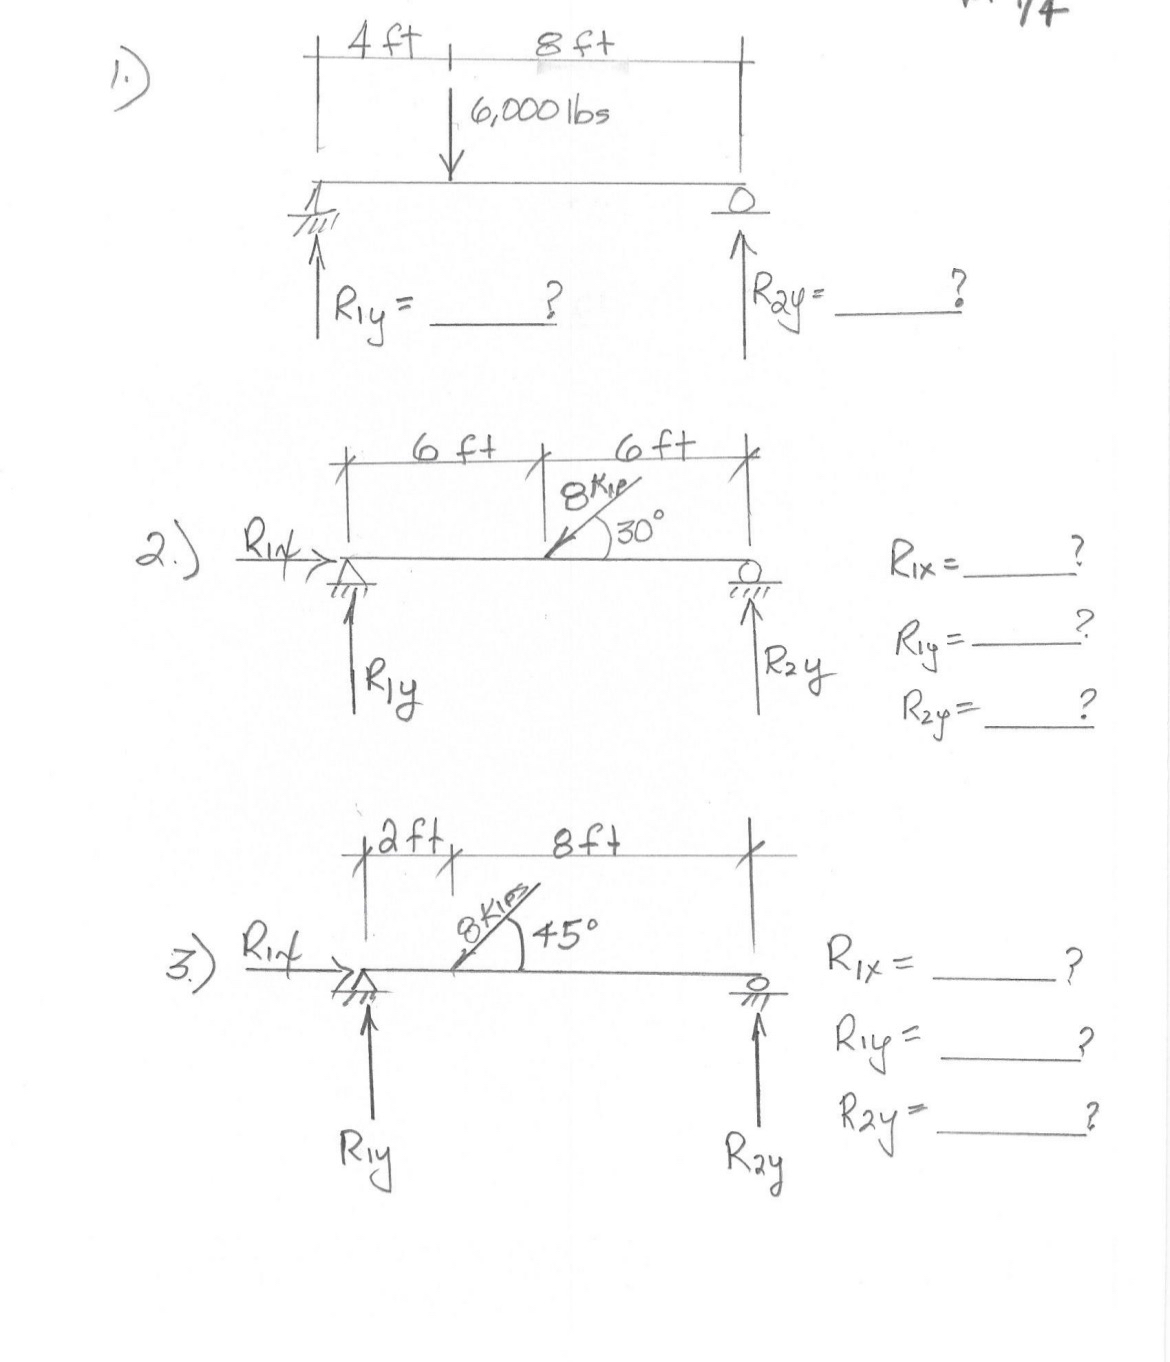 1/4
1.)
4 ft 8 ft
6,000 lbs
R1y = ____? R2y = ____?
6 ft 6 ft
8 Kip
30°
2.) R1x
R1x = ____?
R1y = ____?
R2y = ____?
R1y R2y
2 ft 8 ft
8 Kips
45°
3.) R1x
R1x = ____?
R1y = ____?
R2y = ____?
R1y R2y